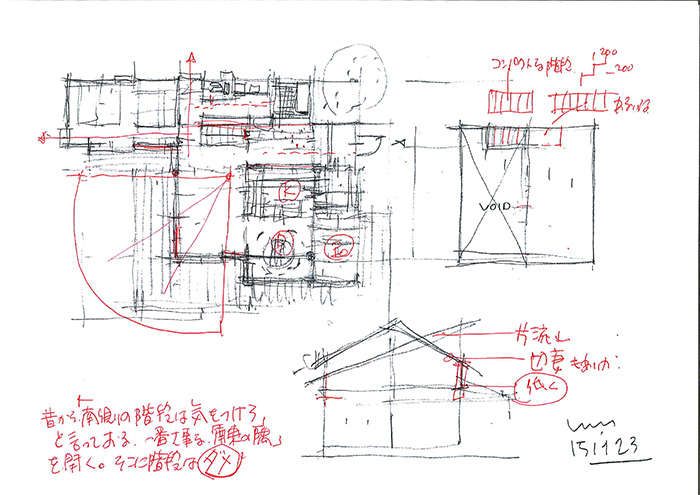 コンパクトな階段
200
200
VOID
K
片流れ
切妻もありか？
低く
昔から「南線りの階段は気をつけろ」
と言ってある。一番大事な「南東の隅」
を開く。そこに階段は ダメ
151123